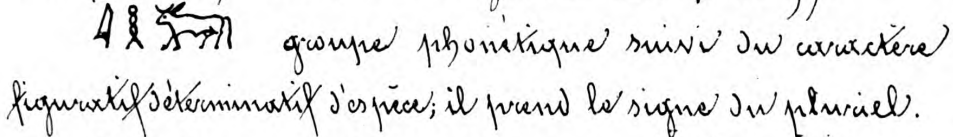 groupe phonétique suivi du caractère
figuratif déterminatif d'espèce; il prend le signe du pluriel.